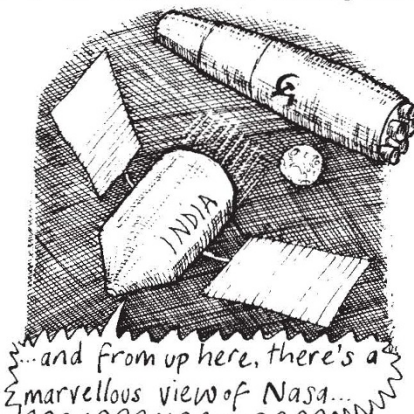 INDIA
...and from up here, there's a
marvellous view of Nasa...